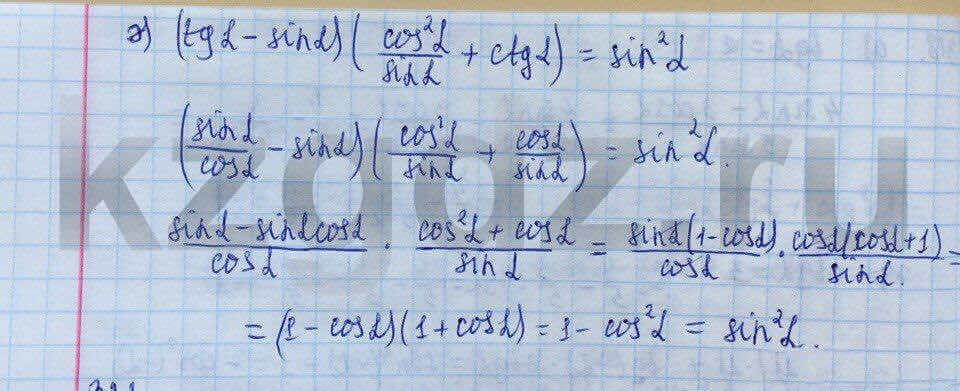 э) (tgα − sinα) (cos²α/sinα + ctgα) = sin²α
(sinα/cosα − sinα) (cos²α/sinα + cosα/sinα) = sin²α.
(sinα − sinαcosα)/cosα · (cos²α + cosα)/sinα = sinα(1−cosα)/cosα · cosα(cosα+1)/sinα. =
= (1 − cosα)(1 + cosα) = 1 − cos²α = sin²α.
kzgdz.ru